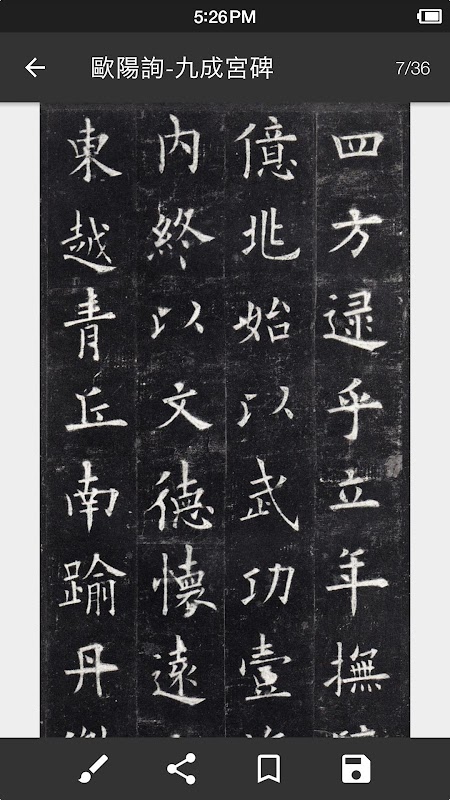 5:26PM
歐陽詢-九成宮碑
7/36
四方逯乎立年撫
億兆始以武功壹
內終以文德懷遠
東越青丘南踰丹